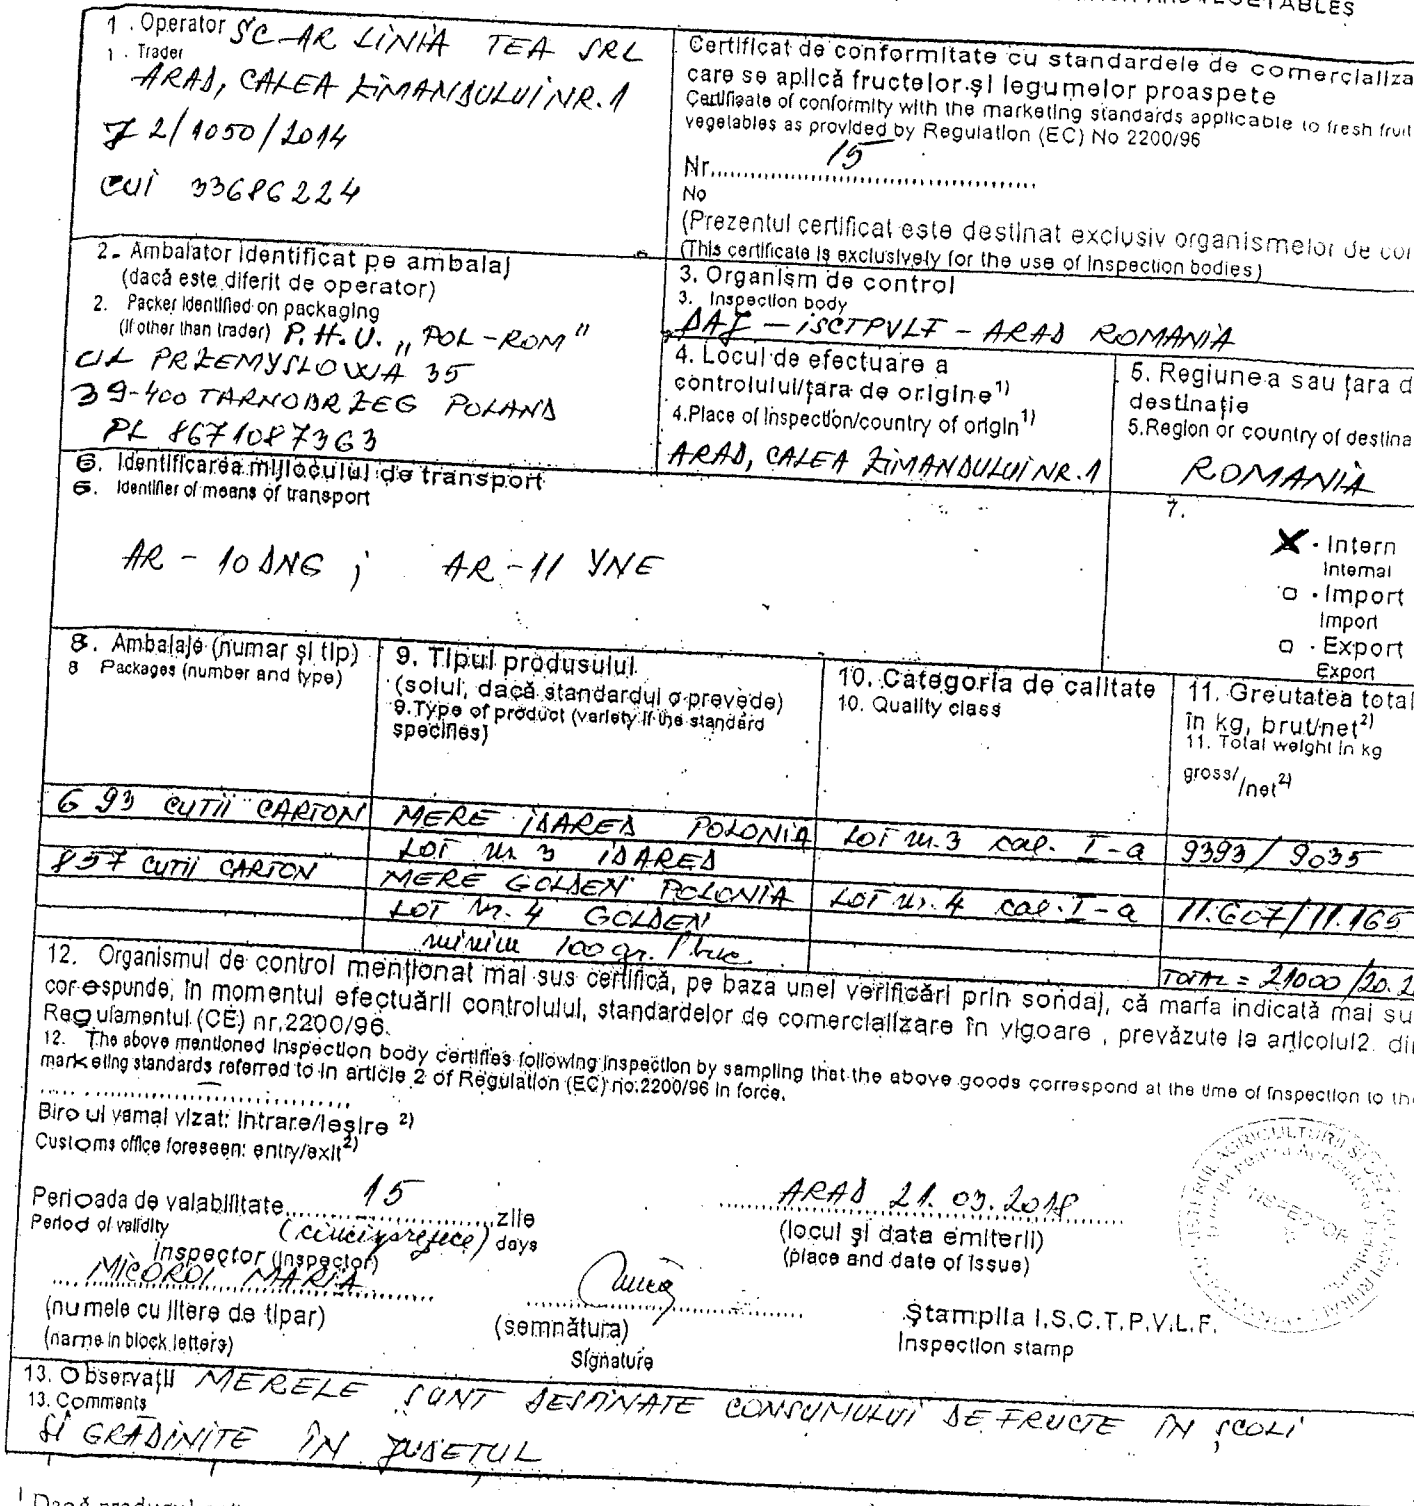 1. Operator SC AR LINIA TEA SRL
1. Trader
ARAD, CALEA ZIMANDULUI NR.1
J 2/1050/2014
CUI 33686224
Certificat de conformitate cu standardele de comercializa
care se aplică fructelor și legumelor proaspete
Certificate of conformity with the marketing standards applicable to fresh fruit
vegetables as provided by Regulation (EC) No 2200/96
Nr. 15
No
(Prezentul certificat este destinat exclusiv organismelor de con
(This certificate is exclusively for the use of inspection bodies)
2. Ambalator identificat pe ambalaj
(dacă este diferit de operator)
2. Packer identified on packaging
(if other than trader) P.H.U. „POL-ROM"
UL PRZEMYSLOWA 35
39-400 TARNOBRZEG POLAND
PL 8671087363
3. Organism de control
3. Inspection body
DAJ - ISCTPVLF - ARAD ROMANIA
4. Locul de efectuare a
controlului/țara de origine 1)
4.Place of inspection/country of origin 1)
ARAD, CALEA ZIMANDULUI NR.1
5. Regiunea sau țara d
destinație
5.Region or country of destina
ROMANIA
6. Identificarea mijlocului de transport
6. Identifier of means of transport
AR - 10 DNG ; AR - 11 YNE
7.
X - Intern
Internal
□ - Import
Import
□ - Export
Export
8. Ambalaje (numar și tip)
8 Packages (number and type)
9. Tipul produsului
(soiul, dacă standardul o prevede)
9.Type of product (variety if the standard
specifies)
10. Categoria de calitate
10. Quality class
11. Greutatea total
în kg, brut/net 2)
11. Total weight in kg
gross/ /net 2)
693 CUTII CARTON MERE IDARED POLONIA LOT nr.3 cal. I-a 9393/9035
LOT nr 3 IDARED
857 CUTII CARTON MERE GOLDEN POLONIA LOT nr.4 cal. I-a 11.607/11.165
LOT Nr. 4 GOLDEN
minim 100 gr./buc
TOTAL = 21000/20.2
12. Organismul de control menționat mai sus certifică, pe baza unei verificări prin sondaj, că marfa indicată mai su
corespunde, în momentul efectuării controlului, standardelor de comercializare în vigoare, prevăzute la articolul2. di
Regulamentul (CE) nr,2200/96.
12. The above mentioned inspection body certifies following inspection by sampling that the above goods correspond at the time of inspection to the
marketing standards referred to in article 2 of Regulation (EC) no.2200/96 in force.
Biroul vamal vizat: intrare/ieșire 2)
Customs office foreseen: entry/exit 2)
Perioada de valabilitate 15 zile
Period of validity (cincisprezece) days
ARAD 21.03.2018
(locul și data emiterii)
(place and date of issue)
Inspector (Inspector)
MICOROI MARIA
(numele cu litere de tipar)
(name in block letters)
(semnătura)
Signature
Ștampila I.S.C.T.P.V.L.F.
Inspection stamp
INSPECTOR
13. Observații MERELE SUNT DESTINATE CONSUMULUI DE FRUCTE ÎN ȘCOLI
13. Comments
ȘI GRĂDINIȚE ÎN JUDEȚUL